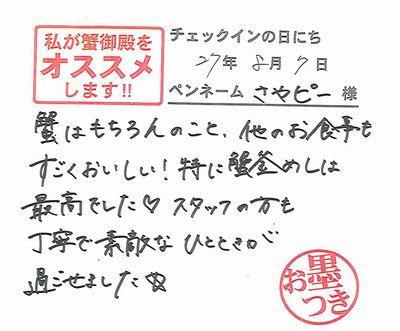 私が蟹御殿を
オススメ
します!!
チェックインの日にち
27年 8月 7日
ペンネーム さやピー 様
蟹はもちろんのこと、他のお食事も
すごくおいしい!特に蟹釜めしは
最高でした♡ スタッフの方も
丁寧で素敵な ひとときが
過ごせました☆
お墨つき